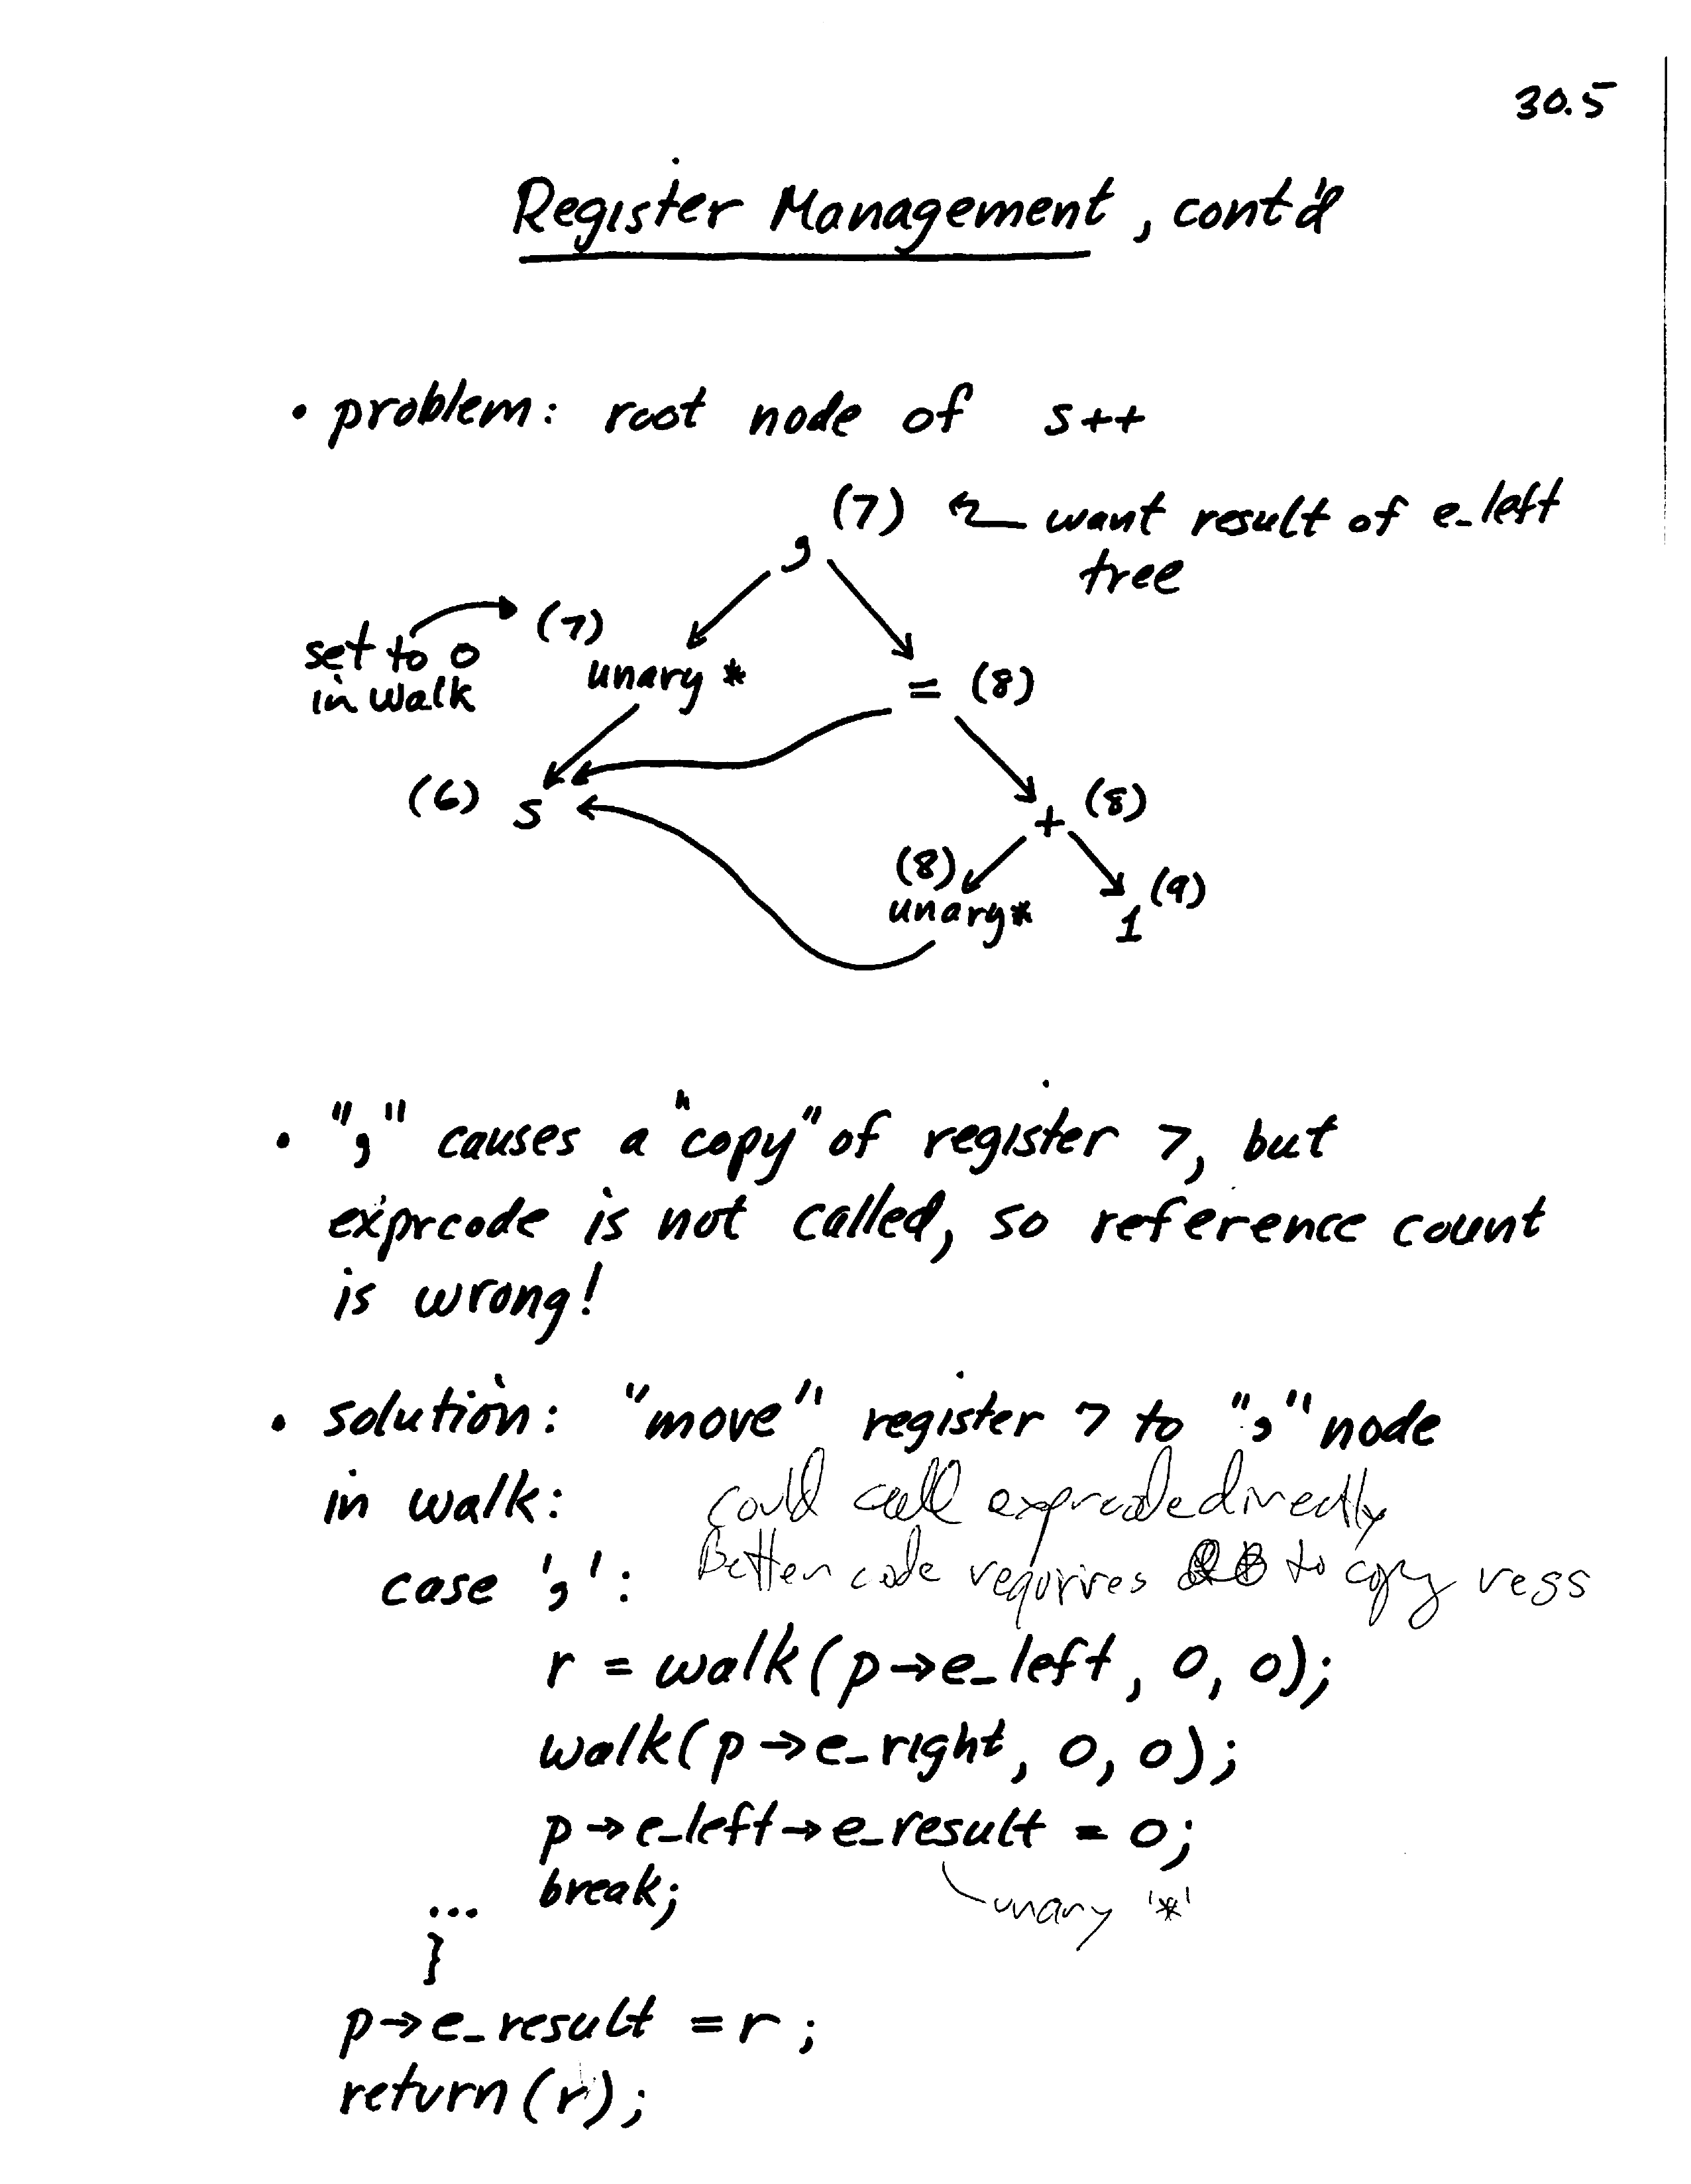 30.5
Register Management, cont'd
• problem: root node of s++
(7) want result of e_left
tree
,
set to 0
in walk
(7)
unary *
= (8)
(6) s
+ (8)
(8)
unary*
1 (9)
• "," causes a "copy" of register 7, but
exprcode is not called, so reference count
is wrong!
• solution: "move" register 7 to "," node
in walk:
could call exprcode directly
case ',':
Better code requires to copy regs
r = walk(p→e_left, 0, 0);
walk(p→e_right, 0, 0);
p→e_left→e_result = 0;
break;
unary '*'
...
}
p→e_result = r;
return(r);